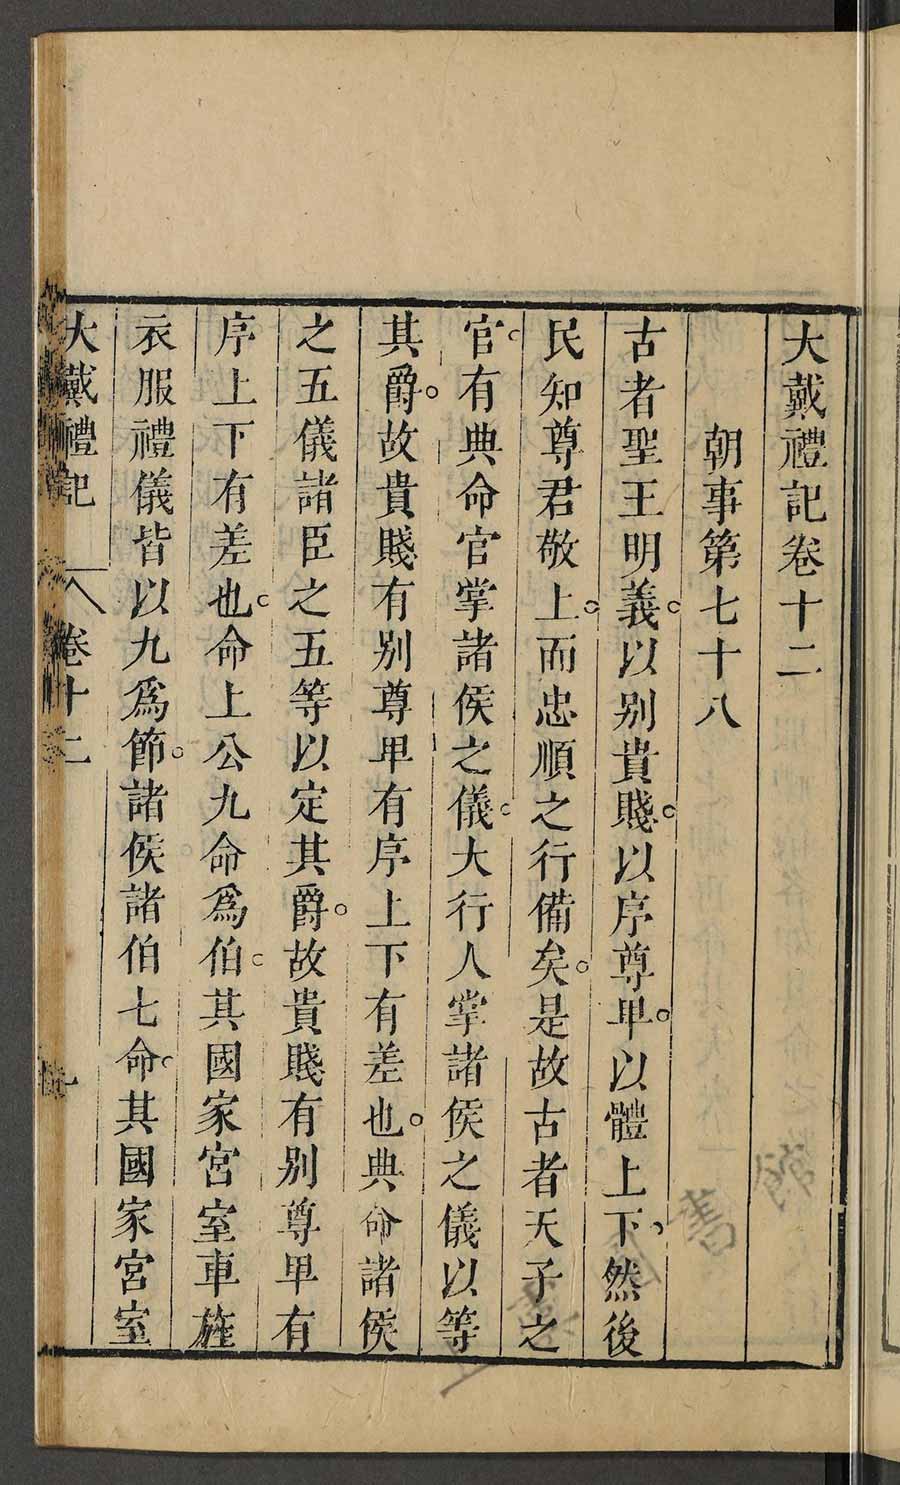 大戴禮記卷十二
朝事第七十八
古者聖王明義。以別貴賤。以序尊卑。以體上下。然後
民知尊君敬上。而忠順之行備矣。是故古者天子之
官。有典命官掌諸侯之儀。大行人掌諸侯之儀以等
其爵。故貴賤有別尊卑有序上下有差也。典命諸侯
之五儀諸臣之五等以定其爵。故貴賤有別尊卑有
序上下有差也。命上公九命爲伯。其國家宮室車旌
衣服禮儀皆以九爲節。諸侯諸伯七命。其國家宮室
大戴禮記 卷十二 一